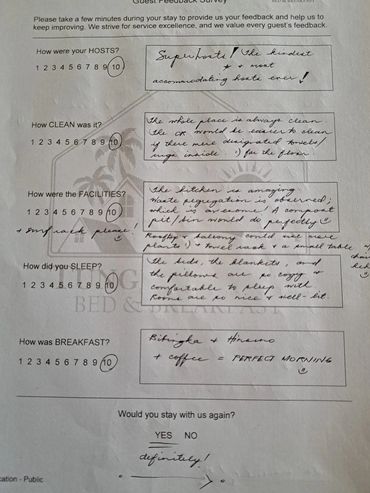 Guest Feedback Survey
Please take a few minutes during your stay to provide us your feedback and help us to
keep improving. We strive for service excellence, and we value every guest's feedback.
How were your HOSTS?
1 2 3 4 5 6 7 8 9 10
Superhosts! The kindest
& most
accommodating hosts ever!
How CLEAN was it?
1 2 3 4 5 6 7 8 9 10
The whole place is always clean
The CR would be easier to clean
if there were designated towels/
rugs inside :) for the floor.
How were the FACILITIES?
1 2 3 4 5 6 7 8 9 10
The kitchen is amazing
Waste segregation is observed,
which is awesome! A compost
pit/bin would do perfectly
please!
Rooftop & balcony could use more
plants :) + towel rack & a small table
How did you SLEEP?
1 2 3 4 5 6 7 8 9 10
The beds, the blankets, and
the pillows are so cozy &
comfortable to sleep with
Rooms are so nice & well-lit.
BED & BREAKFAST
How was BREAKFAST?
1 2 3 4 5 6 7 8 9 10
Bibingka &
+ coffee = PERFECT MORNING
Would you stay with us again?
YES NO
definitely!
- Public